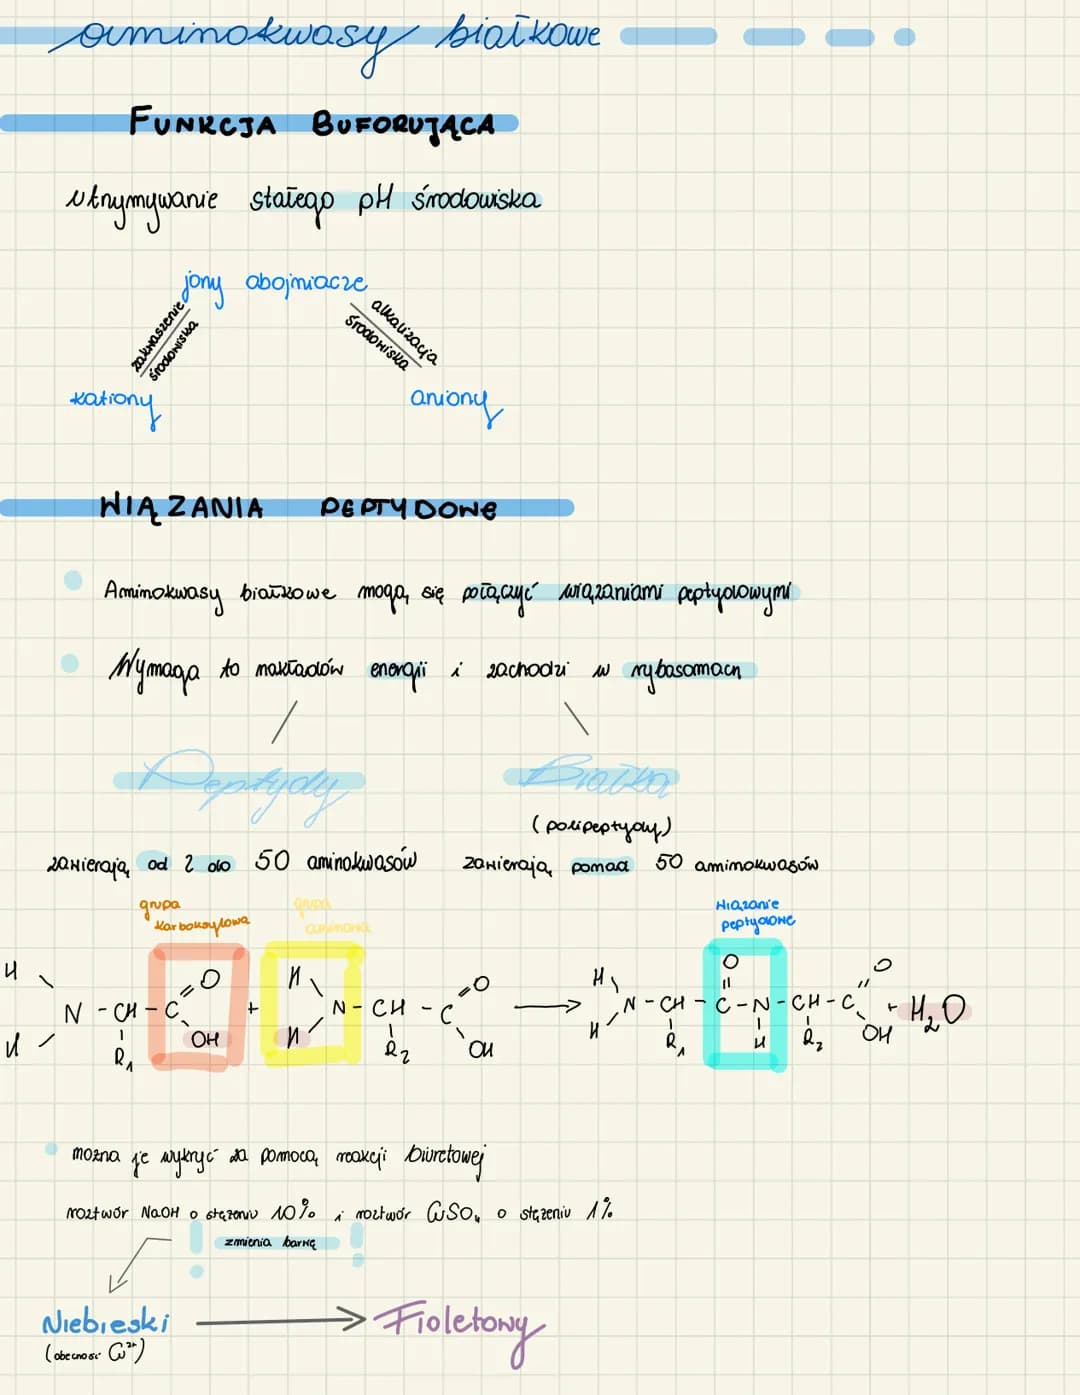 aminokwasy białkowe
FUNKCJA BUFORUJĄCA
utrzymywanie stałego pH środowiska
jony obojniacze
zakwaszenie środowiska
alkalizacja środowiska
kationy
aniony
WIĄZANIA PEPTYDOWE
Aminokwasy białkowe mogą się połączyć wiązaniami peptydowymi
Wymaga to nakładów energii i zachodzi w rybosomach
Peptydy
Białka
(polipeptydy)
zawierają od 2 do 50 aminokwasów
zawierają ponad 50 aminokwasów
grupa karboksylowa
grupa aminowa
wiązanie peptydowe
H H N - CH - C = O OH R₁ + H H N - CH - C = O OH R₂ → H H N - CH - C - N - CH - C = O OH + H₂O
O H R₁ R₂
można je wykryć za pomocą reakcji biuretowej
roztwór NaOH o stężeniu 10% i roztwór CuSO₄ o stężeniu 1%
! zmienia barwę !
Niebieski → Fioletowy
(obecność Cu²⁺)